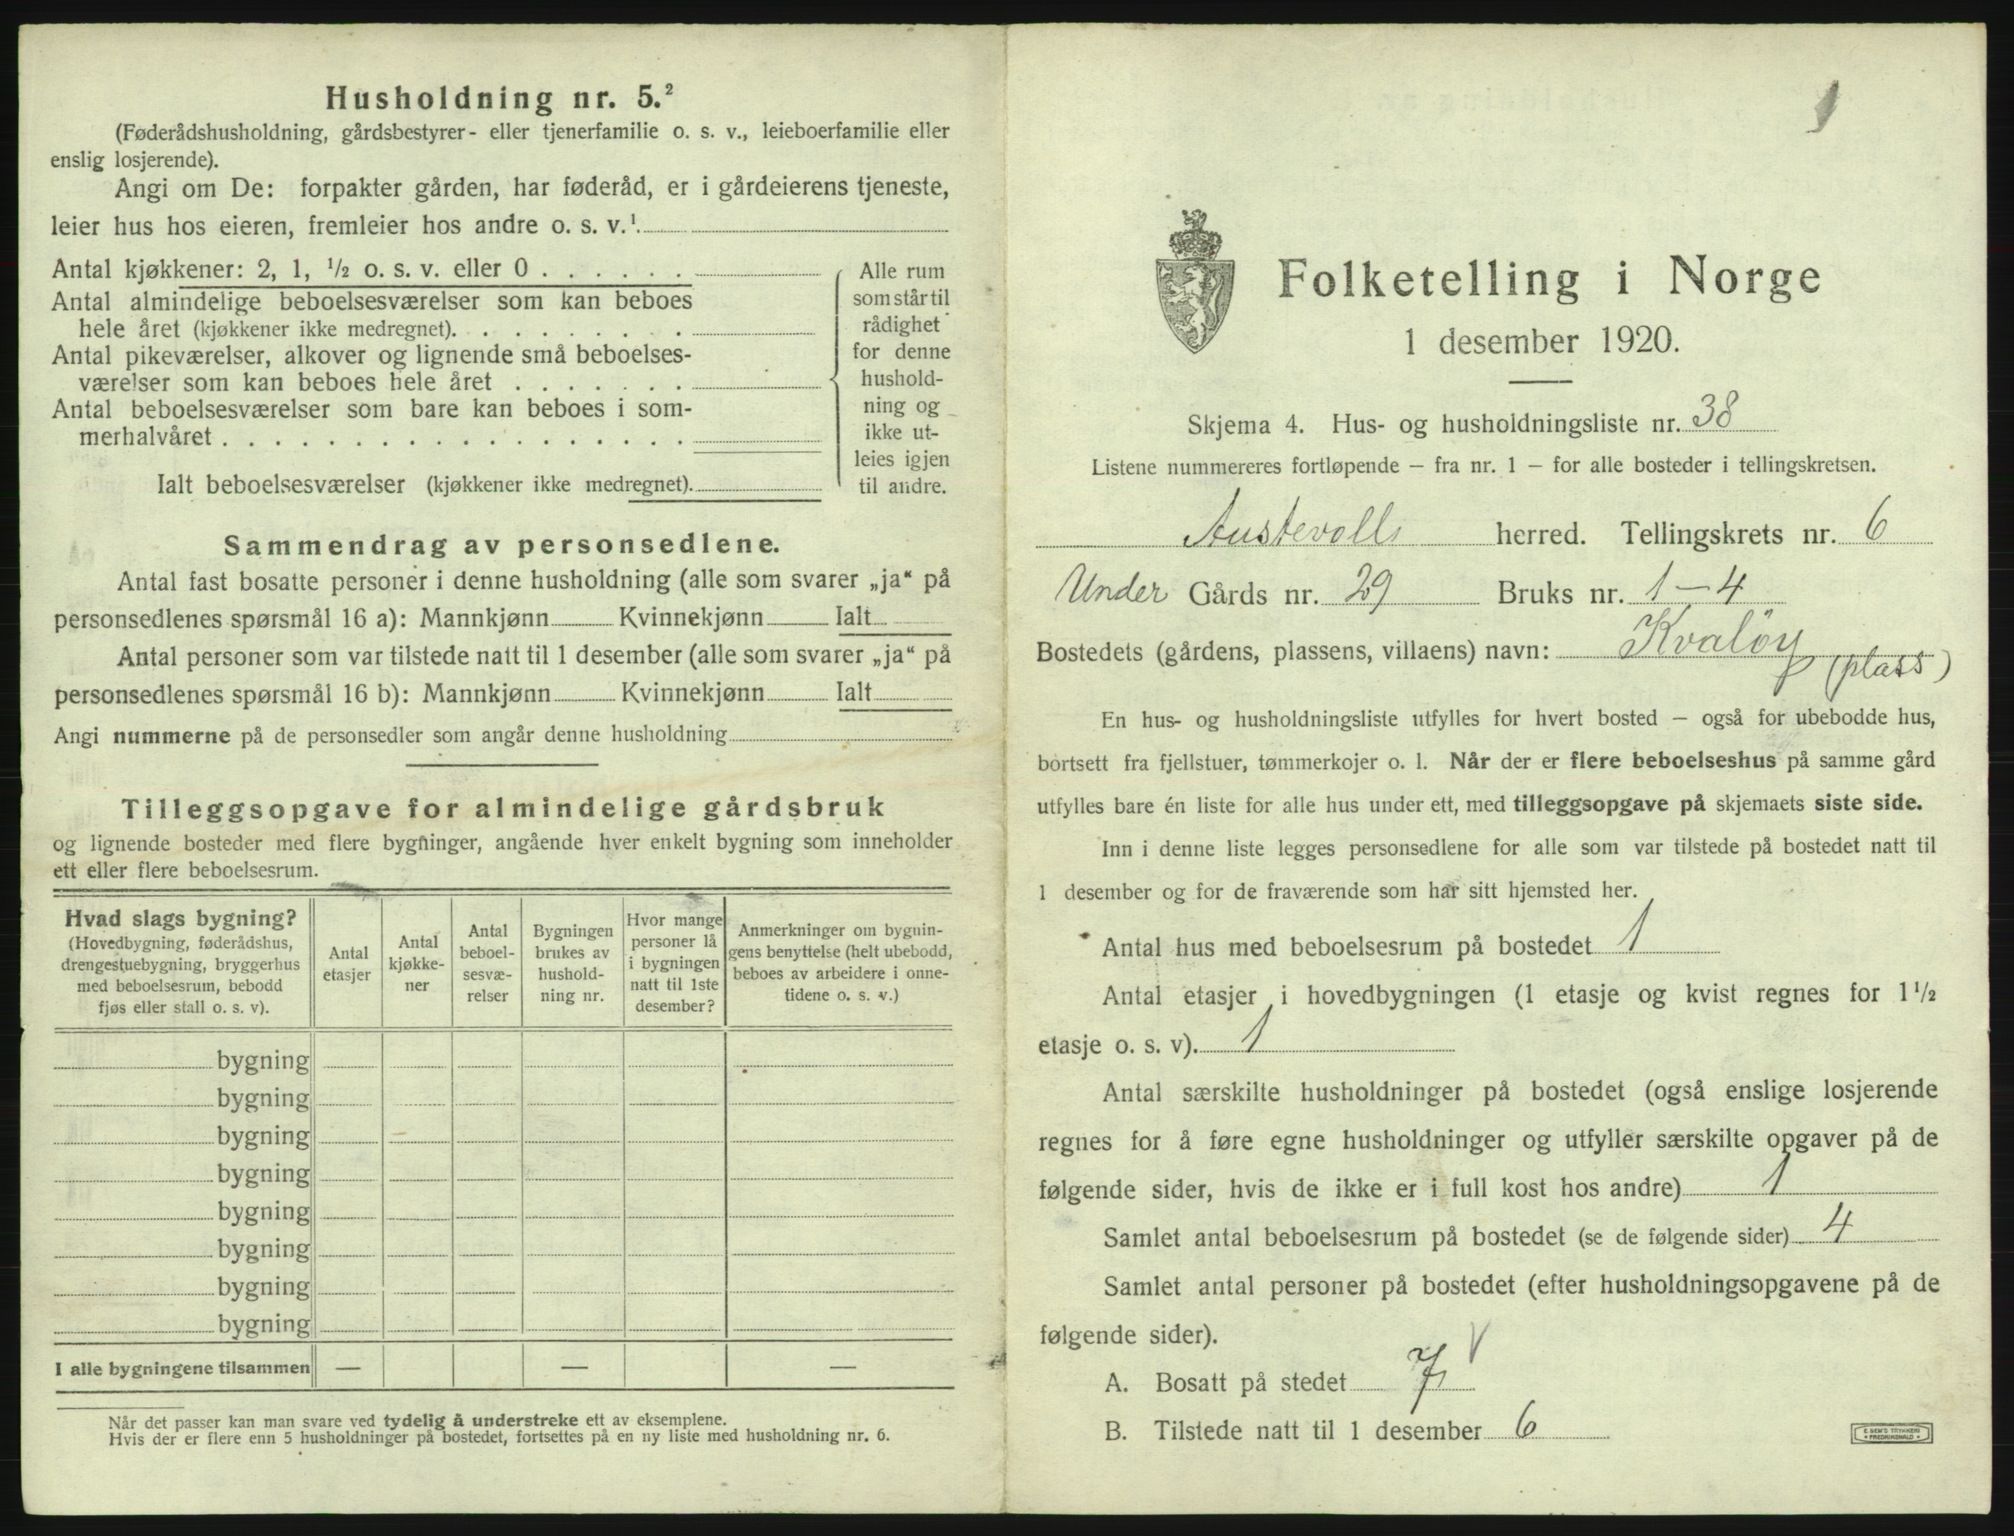 Husholdning nr. 5.²
(Føderådshusholdning, gårdsbestyrer- eller tjenerfamilie o. s. v., leieboerfamilie eller
enslig losjerende).
Angi om De: forpakter gården, har føderåd, er i gårdeierens tjeneste,
leier hus hos eieren, fremleier hos andre o. s. v.¹
Antal kjøkkener: 2, 1, ½ o. s. v. eller 0 . . . . . .
Antal almindelige beboelsesværelser som kan beboes
hele året (kjøkkener ikke medregnet). . . . . . . . .
Antal pikeværelser, alkover og lignende små beboelses-
værelser som kan beboes hele året . . . . . . .
Antal beboelsesværelser som bare kan beboes i som-
merhalvåret . . . . . . . . . . . . . . . . .
Ialt beboelsesværelser (kjøkkener ikke medregnet).
Alle rum
som står til
rådighet
for denne
hushold-
ning og
ikke ut-
leies igjen
til andre.
Sammendrag av personsedlene.
Antal fast bosatte personer i denne husholdning (alle som svarer „ja“ på
personsedlenes spørsmål 16 a): Mannkjønn Kvinnekjønn Ialt
Antal personer som var tilstede natt til 1 desember (alle som svarer „ja“ på
personsedlenes spørsmål 16 b): Mannkjønn Kvinnekjønn Ialt
Angi nummerne på de personsedler som angår denne husholdning
Tilleggsopgave for almindelige gårdsbruk
og lignende bosteder med flere bygninger, angående hver enkelt bygning som inneholder
ett eller flere beboelsesrum.
Hvad slags bygning?
(Hovedbygning, føderådshus,
drengestuebygning, bryggerhus
med beboelsesrum, bebodd
fjøs eller stall o. s. v).
Antal
etasjer
Antal
kjøkke-
ner
Antal
beboel-
sesvæ-
relser
Bygningen
brukes av
hushold-
ning nr.
Hvor mange
personer lå
i bygningen
natt til 1ste
desember?
Anmerkninger om bygnin-
gens benyttelse (helt ubebodd,
beboes av arbeidere i onne-
tidene o. s. v.)
bygning
bygning
bygning
bygning
bygning
bygning
bygning
bygning
I alle bygningene tilsammen — — —
Når det passer kan man svare ved tydelig å understreke ett av eksemplene.
Hvis der er flere enn 5 husholdninger på bostedet, fortsettes på en ny liste med husholdning nr. 6.
Folketelling i Norge
1 desember 1920.
Skjema 4. Hus- og husholdningsliste nr. 38
Listene nummereres fortløpende – fra nr. 1 – for alle bosteder i tellingskretsen.
Austevolls herred. Tellingskrets nr. 6
Under Gårds nr. 29 Bruks nr. 1–4
Bostedets (gårdens, plassens, villaens) navn: Kvaløy
(plass)
En hus- og husholdningsliste utfylles for hvert bosted – også for ubebodde hus,
bortsett fra fjellstuer, tømmerkojer o. l. Når der er flere beboelseshus på samme gård
utfylles bare én liste for alle hus under ett, med tilleggsopgave på skjemaets siste side.
Inn i denne liste legges personsedlene for alle som var tilstede på bostedet natt til
1 desember og for de fraværende som har sitt hjemsted her.
Antal hus med beboelsesrum på bostedet 1
Antal etasjer i hovedbygningen (1 etasje og kvist regnes for 1½
etasje o. s. v). 1
Antal særskilte husholdninger på bostedet (også enslige losjerende
regnes for å føre egne husholdninger og utfyller særskilte opgaver på de
følgende sider, hvis de ikke er i full kost hos andre) 1
Samlet antal beboelsesrum på bostedet (se de følgende sider) 4
Samlet antal personer på bostedet (efter husholdningsopgavene på de
følgende sider).
A. Bosatt på stedet 7 V
B. Tilstede natt til 1 desember 6
E. SEM'S TRYKKERI
FREDRIKSHALD